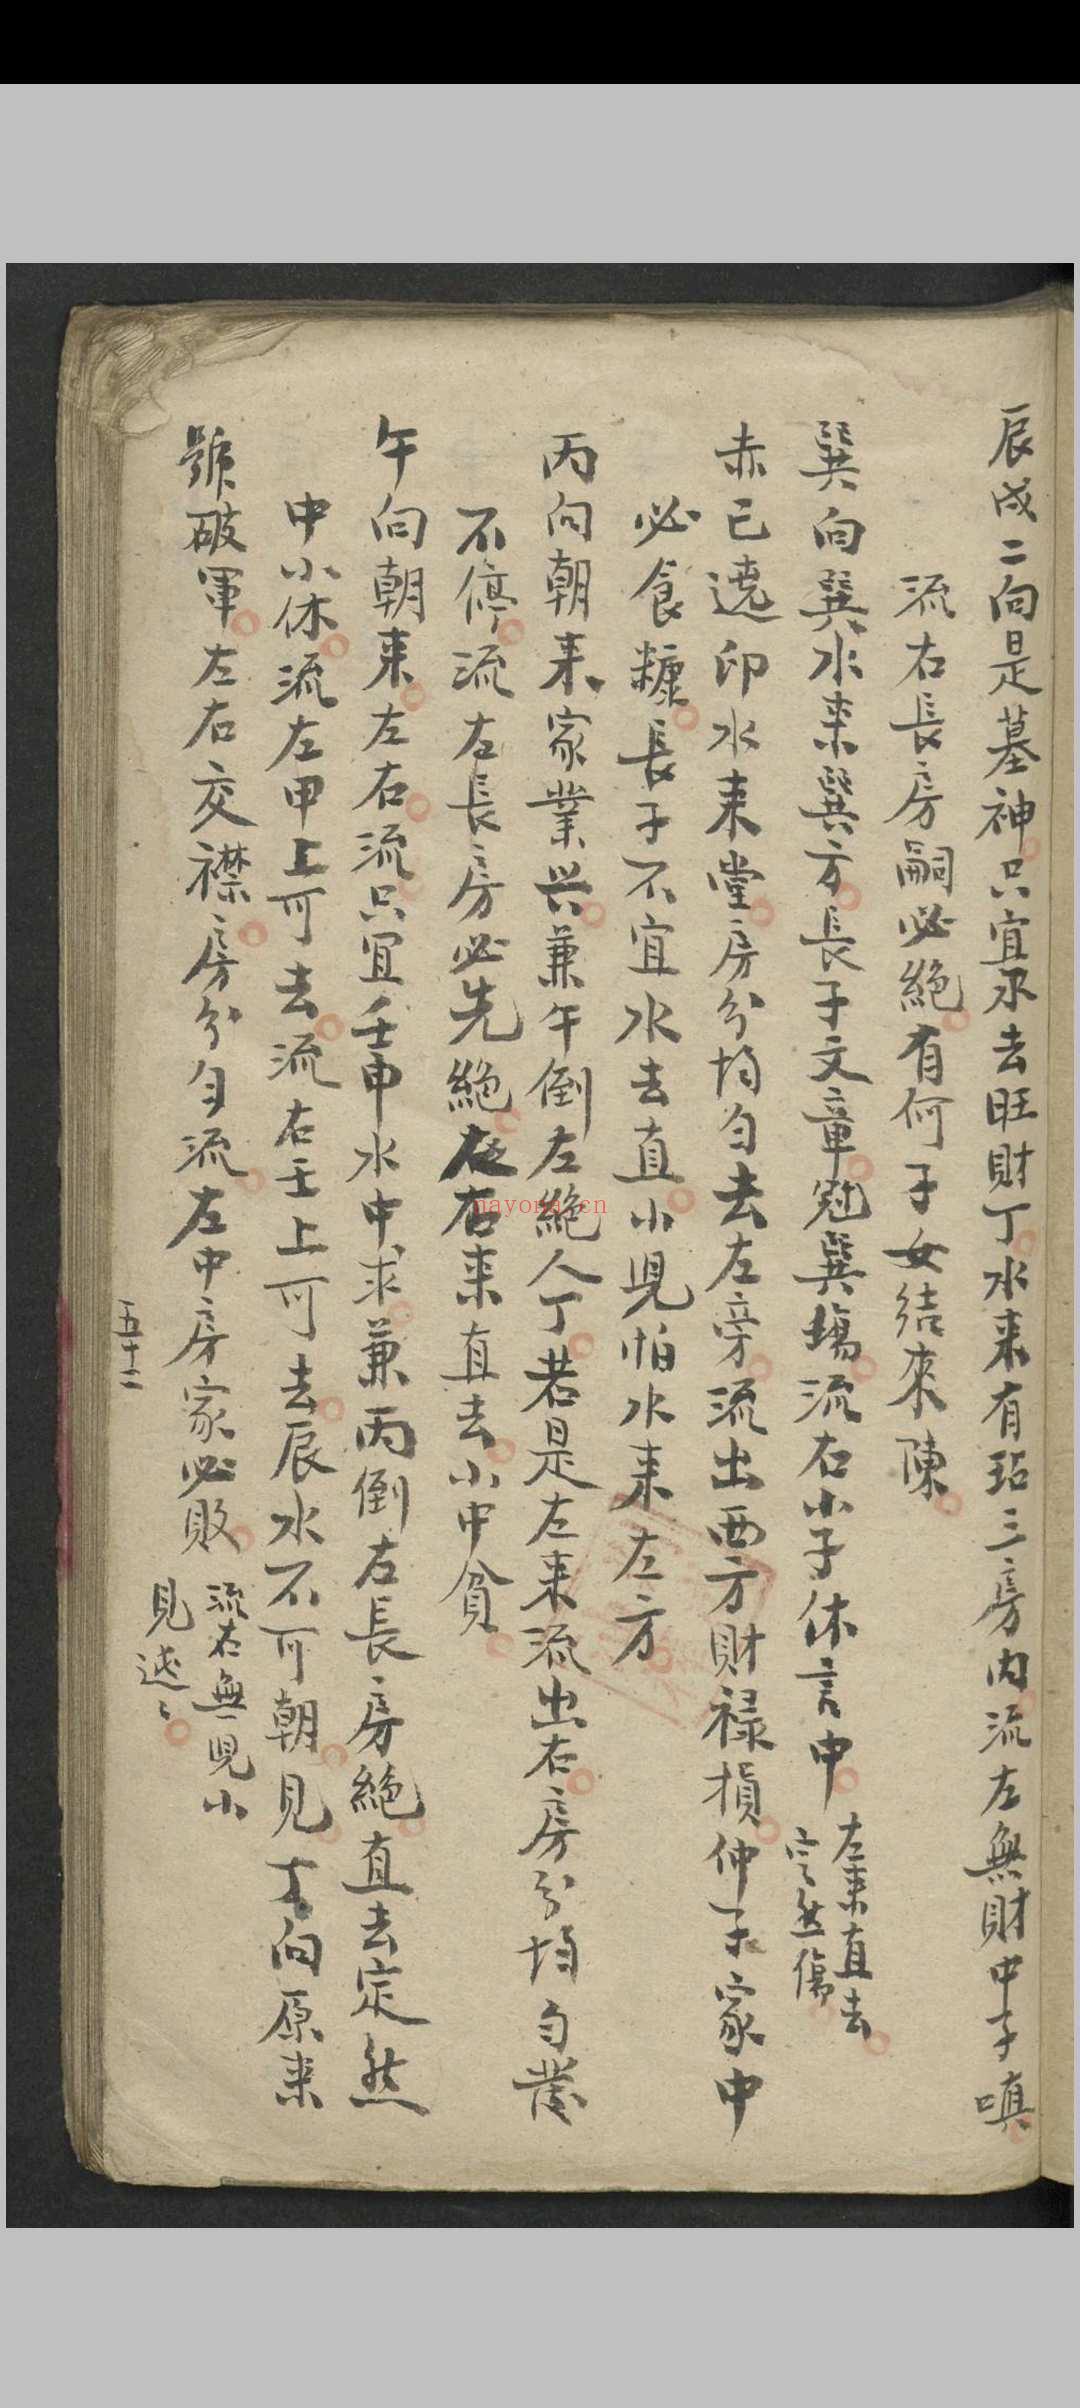 辰戌二向是墓神只宜水去旺財丁水来有玷三房内流左無財中子嗔
流右長房嗣必絕有何子女結來陳
巽向巽水来巽方長子文章冠巽塲流右小子休言中
左来直去
定然傷
赤巳遶印水来堂房分均匀去左旁流出西方財禄損仲子家中
必食糠長子不宜水去直小児怕水来左方
丙向朝来家業兴兼午倒左絕人丁若是左来流出右房分均匀發
不停流左長房必先絕右来直去小中貧
午向朝来左右流只宜壬申水中求兼丙倒左長房絕直去定然
中小休流左甲上可去流右壬上可去辰水不可朝見丁向原来
號破軍左右交襟房分匀流左中房家必敗
流右無児小
見遠〻
五十二
nayona.cn